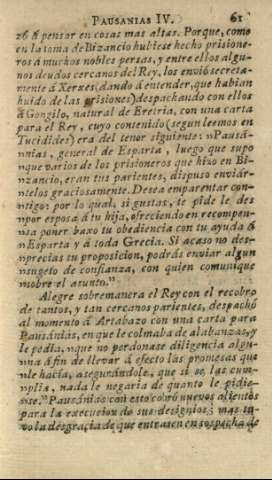 PAUSANIAS IV. 61
26 á pensar en cosas mas altas. Porque, como
en la toma de Bizancio hubiese hecho prisione-
ros á muchos nobles persas, y entre ellos algu-
nos deudos cercanos del Rey, los envió secreta-
mente á Xerxes (dando á entender, que habian
huido de las prisiones) despachando con ellos
á Gongilo, natural de Eretria, con una carta
para el Rey, cuyo contenido (segun leemos en
Tucidides) era del tenor siguiente: "Pausá-
"nias, general de Esparta, luego que supo
"que varios de los prisioneros que hizo en Bi-
"zancio, eran tus parientes, dispuso enviár-
"telos graciosamente. Desea emparentar con-
"tigo: por lo qual, si gustas, te pide le des
"por esposa á tu hija, ofreciendo en recompen-
"sa poner baxo tu obediencia con tu ayuda á
"Esparta y á toda Grecia. Si acaso no des-
"precias su proposicion, podrás enviar algun
"sugeto de confianza, con quien comunique
"sobre el asunto."
Alegre sobremanera el Rey con el recobro
de tantos, y tan cercanos parientes, despachó
al momento á Artabazo con una carta para
Pausánias, en que le colmaba de alabanzas, y
le pedia, "que no perdonase diligencia algu-
"na á fin de llevar á efecto las promesas que
"le hacia, asegurándole, que si se las cum-
"plia, nada le negaria de quanto le pidie-
"se." Pausánias con esto cobró nuevos alientos
para la execucion de sus designios; mas tu-
vo la desgracia de que entrasen en sospecha de